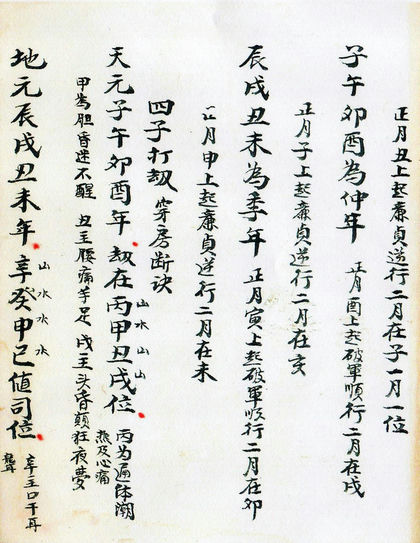 正月丑上起廉貞逆行二月在子一月一位
子午卯酉為仲年 正月酉上起破軍順行二月在戌
正月子上起廉貞逆行二月在亥
辰戌丑未為季年 正月寅上起破軍順行二月在卯
正月申上起廉貞逆行二月在未
四子打劫 穿房斷訣
天元子午卯酉年 劫在丙甲丑戌位 丙为遍体潮热及心痛
山水山山
甲為胆昏迷不醒 丑主腰痛手足 戌主头昏颠狂夜夢
地元辰戌丑未年 辛癸申巳值司位 辛主口干耳聾
山水水水